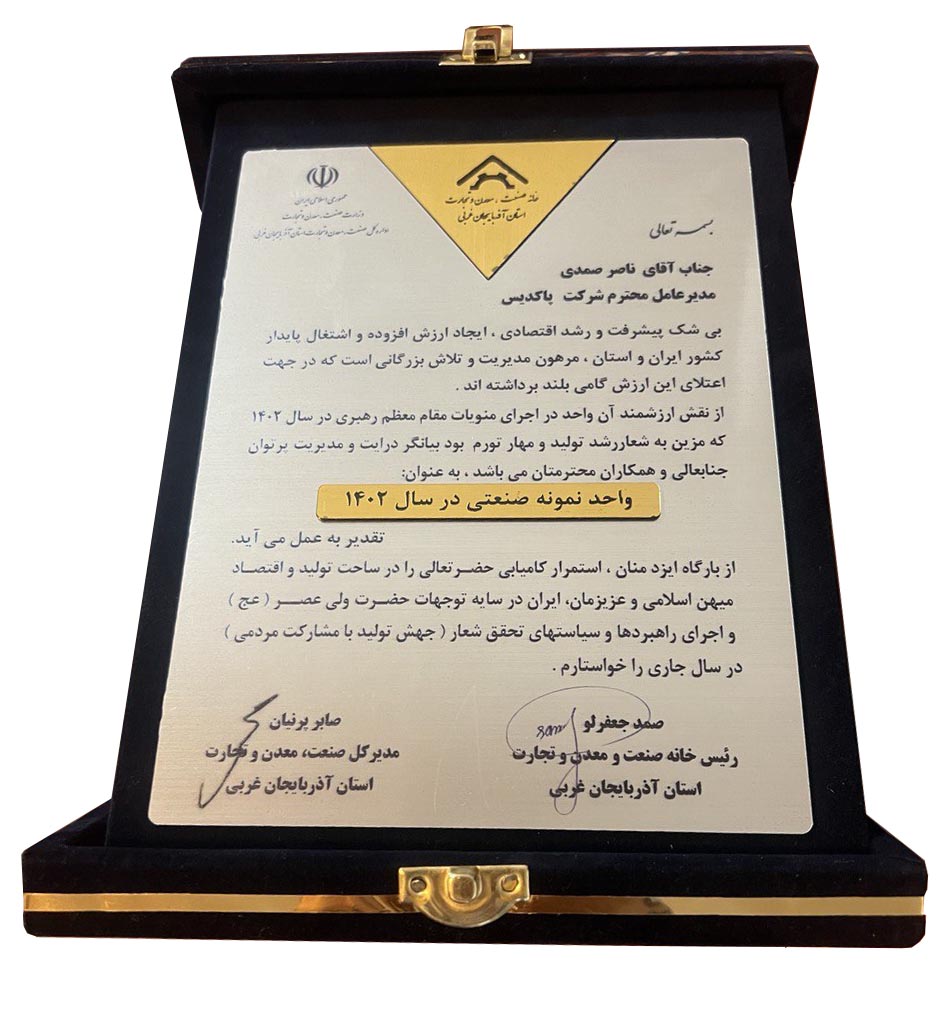 جمهوری اسلامی ایران
وزارت صنعت، معدن و تجارت
اداره کل صنعت، معدن و تجارت استان آذربایجان غربی
خانه صنعت ، معدن و تجارت
استان آذربایجان غربی
بسمه تعالی
جناب آقای ناصر صمدی
مدیرعامل محترم شرکت پاکدیس
بی شک پیشرفت و رشد اقتصادی ، ایجاد ارزش افزوده و اشتغال پایدار
کشور ایران و استان ، مرهون مدیریت و تلاش بزرگانی است که در جهت
اعتلای این ارزش گامی بلند برداشته اند .
از نقش ارزشمند آن واحد در اجرای منویات مقام معظم رهبری در سال ۱۴۰۲
که مزین به شعاررشد تولید و مهار تورم بود بیانگر درایت و مدیریت پرتوان
جنابعالی و همکاران محترمتان می باشد ، به عنوان:
واحد نمونه صنعتی در سال ۱۴۰۲
تقدیر به عمل می آید.
از بارگاه ایزد منان ، استمرار کامیابی حضرتعالی را در ساحت تولید و اقتصاد
میهن اسلامی و عزیزمان، ایران در سایه توجهات حضرت ولی عصر ( عج )
و اجرای راهبردها و سیاستهای تحقق شعار ( جهش تولید با مشارکت مردمی )
در سال جاری را خواستارم .
صمد جعفرلو
رئیس خانه صنعت و معدن و تجارت
استان آذربایجان غربی
صابر پرنیان
مدیرکل صنعت، معدن و تجارت
استان آذربایجان غربی